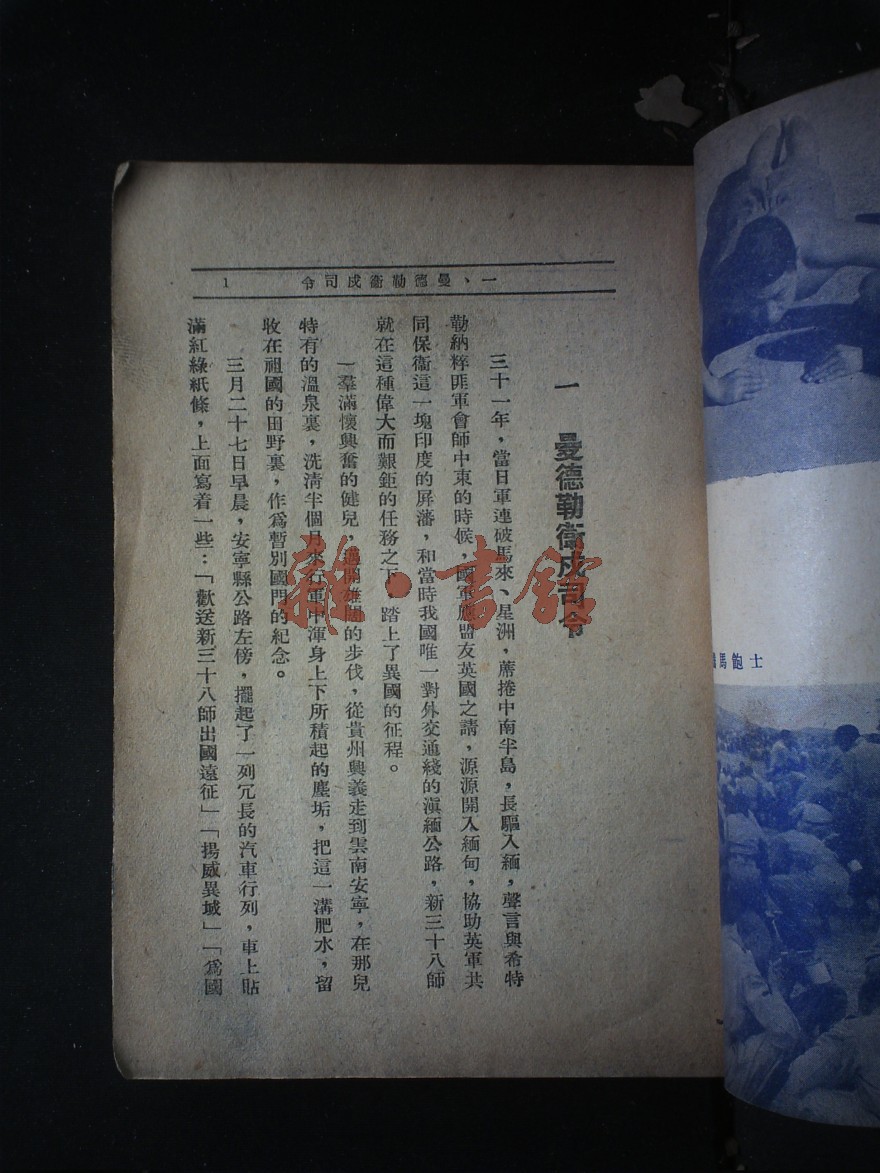 一、曼德勒衞戍司令 1
一 曼德勒衞戍司令
三十一年，當日軍連破馬來、星洲，蓆捲中南半島，長驅入緬，聲言與希特
勒納粹匪軍會師中東的時候，國軍應盟友英國之請，源源開入緬甸，協助英軍共
同保衞這一塊印度的屏藩，和當時我國唯一對外交通綫的滇緬公路，新三十八師
就在這種偉大而艱鉅的任務之下，踏上了異國的征程。
一羣滿懷興奮的健兒，邁開雄闊的步伐，從貴州興義走到雲南安寧，在那兒
特有的溫泉裏，洗清半個月來行軍中渾身上下所積起的塵垢，把這一溝肥水，留
收在祖國的田野裏，作爲暫別國門的紀念。
三月二十七日早晨，安寧縣公路左傍，擺起了一列冗長的汽車行列，車上貼
滿紅綠紙條，上面寫着一些：「歡送新三十八師出國遠征」「揚威異域」「爲國
雜·書館
馬飽士